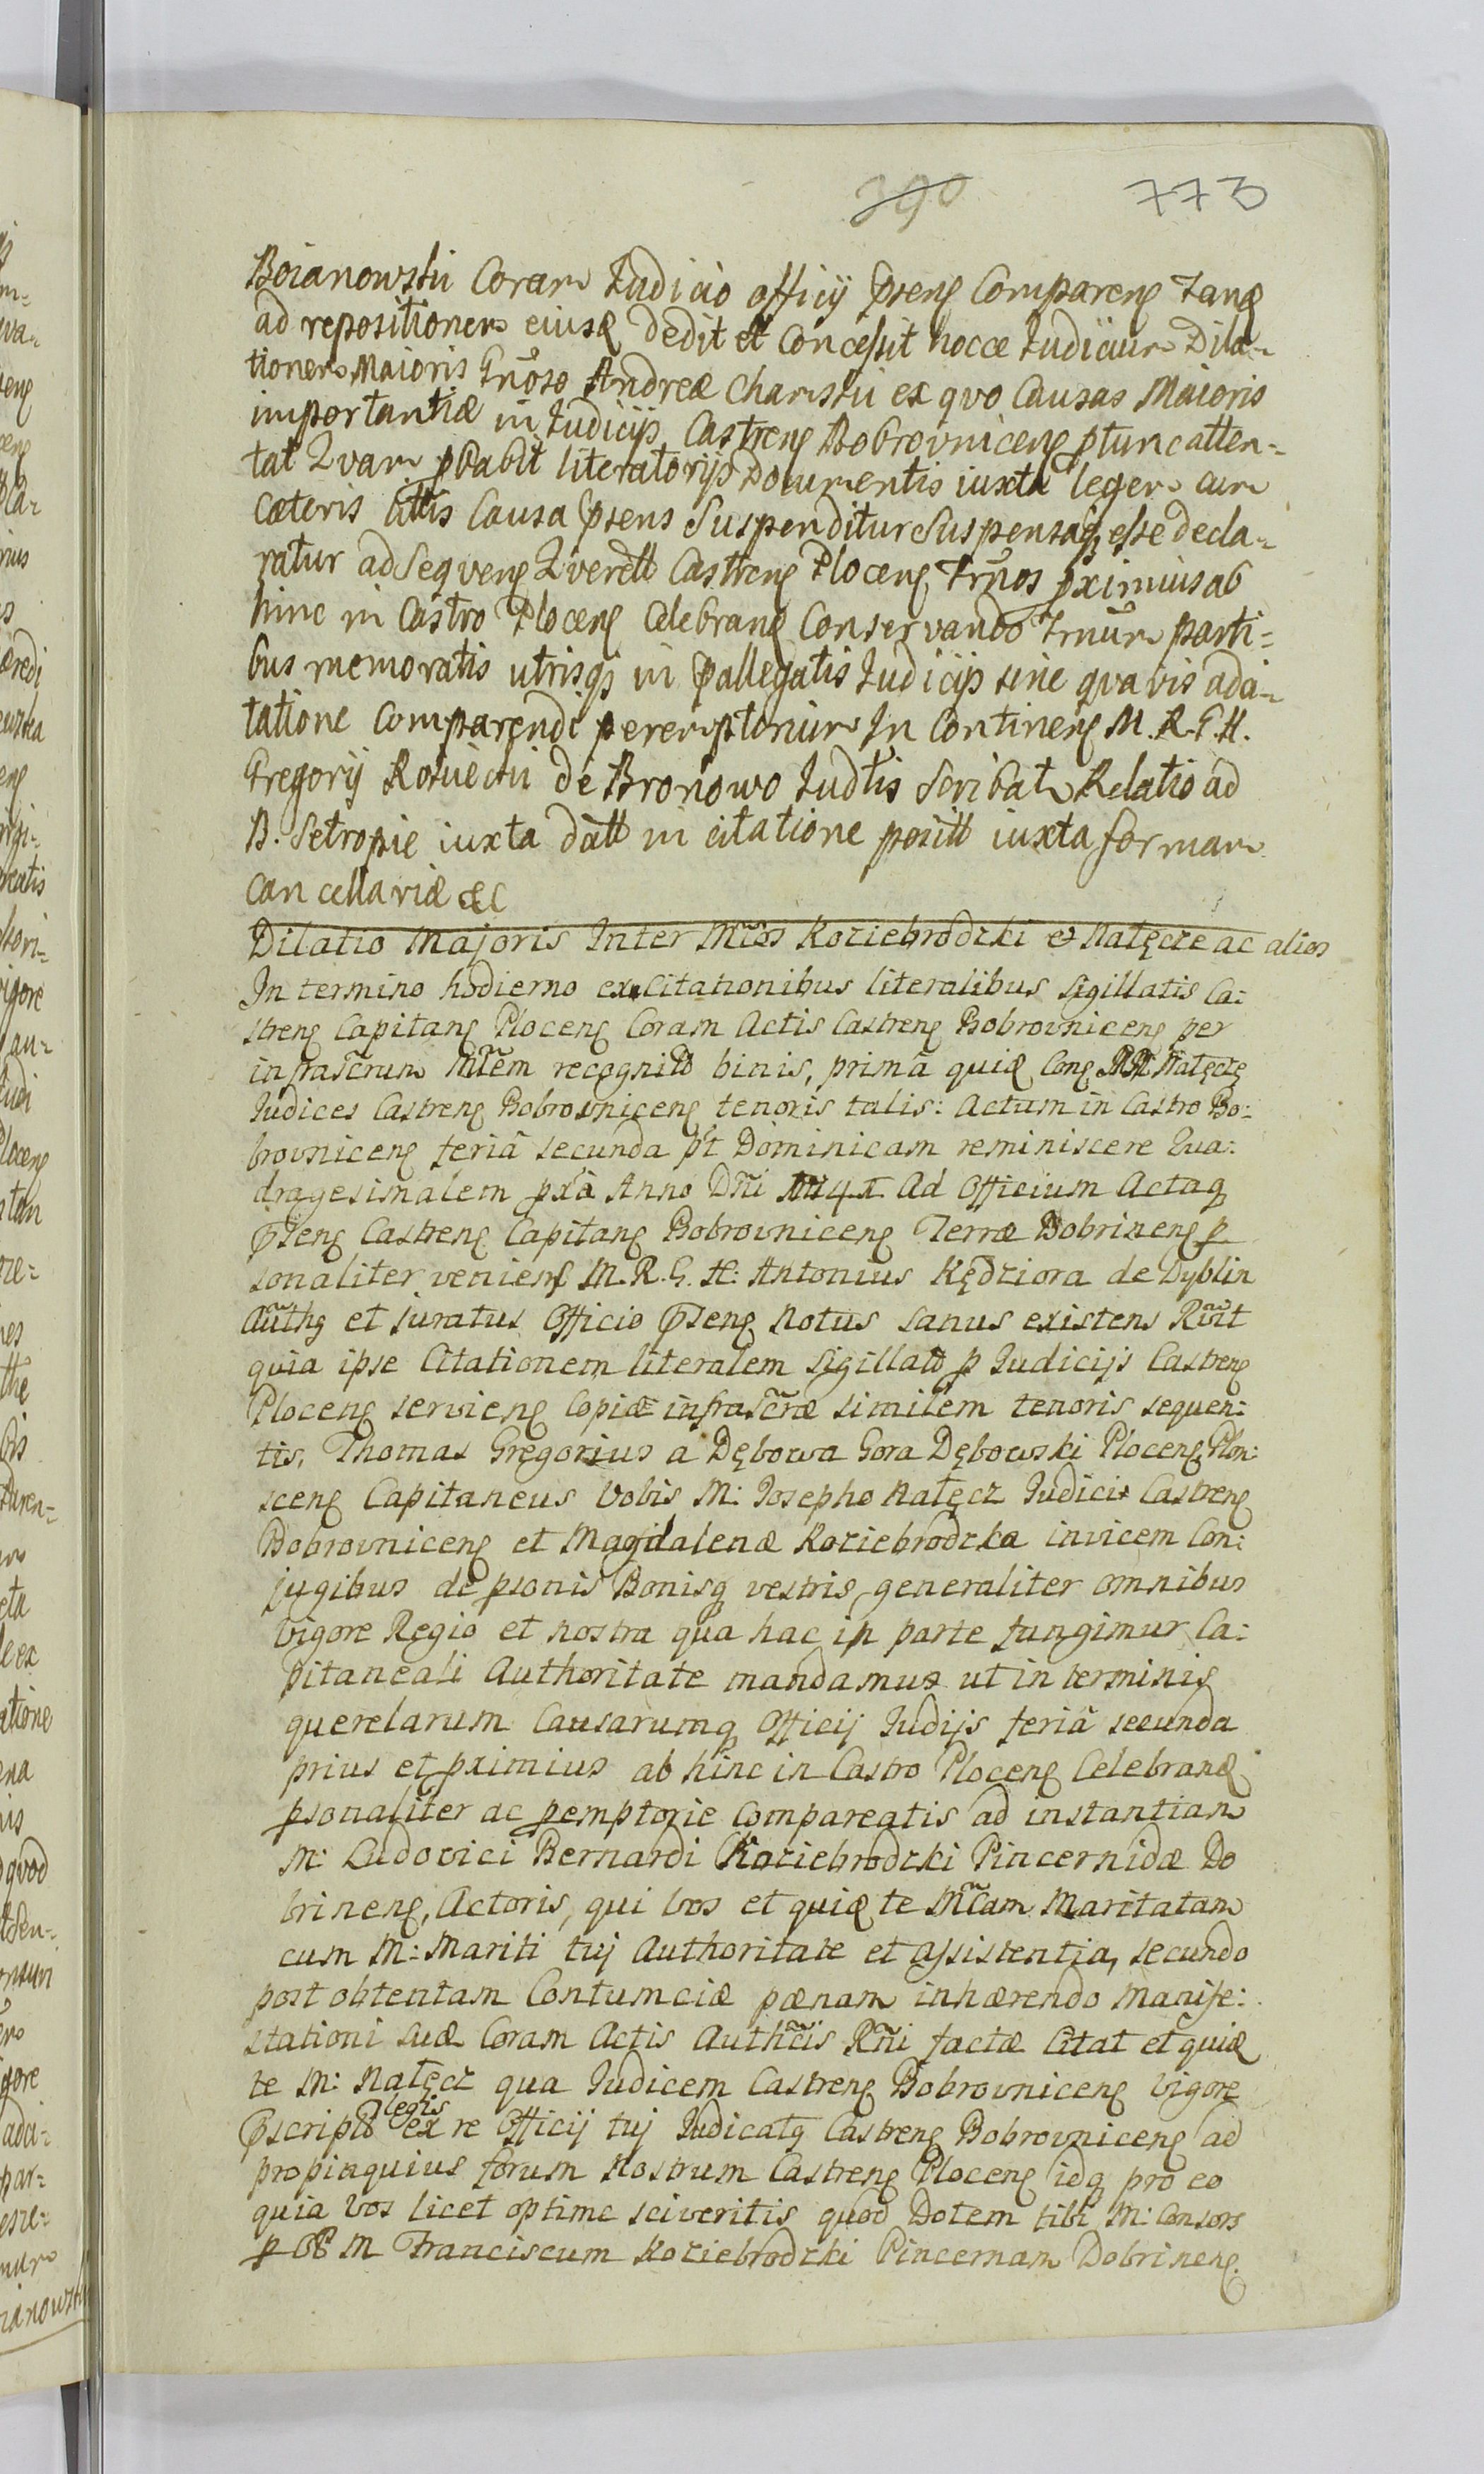 390 773
Boianowski Coram Judicio officij pseng Compareng Tanq
ad repositionem eiusq dedit et Concessit hocce Judicium Dila-
tionem Maioris Gnõso Andreæ Charski ex qvo Causas Maioris
importantiæ in Judicijs Castreng Bobrovniceng ptunc atten-
tat Qvam pbabit literatorijs Documentis iuxta legem cum
Cæteris littis Causa psens Suspenditur Suspensaq esse decla-
ratur ad Seqveng Qverell Castreng Ploceng Trños pximius ab
hinc in Castro Ploceng Celebranq Conservando Trnũm parti-
bus memoratis utrisq in pallegatis Judicijs sine qvavis adci-
tatione Comparendi peremptorium In Continenq M. R. G. H.
Gregorij Rosiecki de Bronowo Judtis Scribatr Relatio ad
B. Setropie iuxta datt in citatione positt iuxta formam
Cancellariæ &c
Dilatio Majoris Inter Mfcos Koziebrodzki & Nałęcze ac alios
In termino hodierno ex Citationibus literalibus Sigillatis Ca:
streng Capitang Ploceng Coram Actis Castreng Bobrovniceng per
infrascrum Mrem recognitt binis, primã quiq Cong Nałęcze
Judices Castreng Bobrovniceng tenoris talis: Actum in Castro Bo:
brovniceng feriã secunda pt Dominicam reminiscere Qua:
dragesimalem pxã Anno Dñi Ad Officium Actaq
pseng Castreng Capitang Bobrovniceng Terræ Dobrineng p
sonaliter veniens M. R. G. H: Antonius Kędziora de Dyblin
Authg et juratus Officio pseng Notus sanus existens Rvit
quia ipse Citationem literalem Sigillatt p Judicijs Castreng
Ploceng servieng Copiæ infrascræ similem tenoris sequen:
tis, Thomas Gregorius a Dębowa Gora Dębowski Ploceng, Plon:
sceng Capitaneus Vobis M: Josepho Nałęcz Judici Castreng
Bobrovniceng et Magdalenæ Koziebrodzka invicem Con:
jugibus de psonis Bonisq vestris generaliter omnibus
Vigore Regio et nostra qua hac in parte fungimur Ca:
pitaneali Authoritate mandamus ut in terminis
querelarum Causarumq Officij Judijs feriã secunda
prius et pximius ab hinc in Castro Ploceng Celebranq
psonaliter ac pemptorie Compareatis ad instantiam
M: Ludovici Bernardi Koziebrodzki Pincernidæ Do
brineng, Actoris, qui Vos et quiq te Mfcam Maritatam
cum M: Mariti tuj Authoritate et assistentia, secundo
post obtentam Contumciæ pænam inhærendo manife:
stationi suæ Coram Actis Authcis Rñi factæ Citat et quiq
te M: Nałęcz qua Judicem Castreng Bobrovniceng Vigore
pscriptt legis ex re Officij tuj Judicatg Castreng Bobrovniceng ad
propinquius forum Nostrum Castreng Ploceng idq pro eo
quia Vos licet optime sciveritis quod Dotem tibi M: Consors
p M Franciscum Koziebrodzki Pincernam Dobrineng